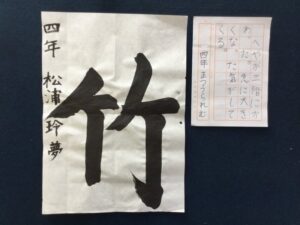 へやが二階にか
わった。急に大き
くなった気がして
くる。
四年 まつうられむ
竹
四年 松浦玲夢